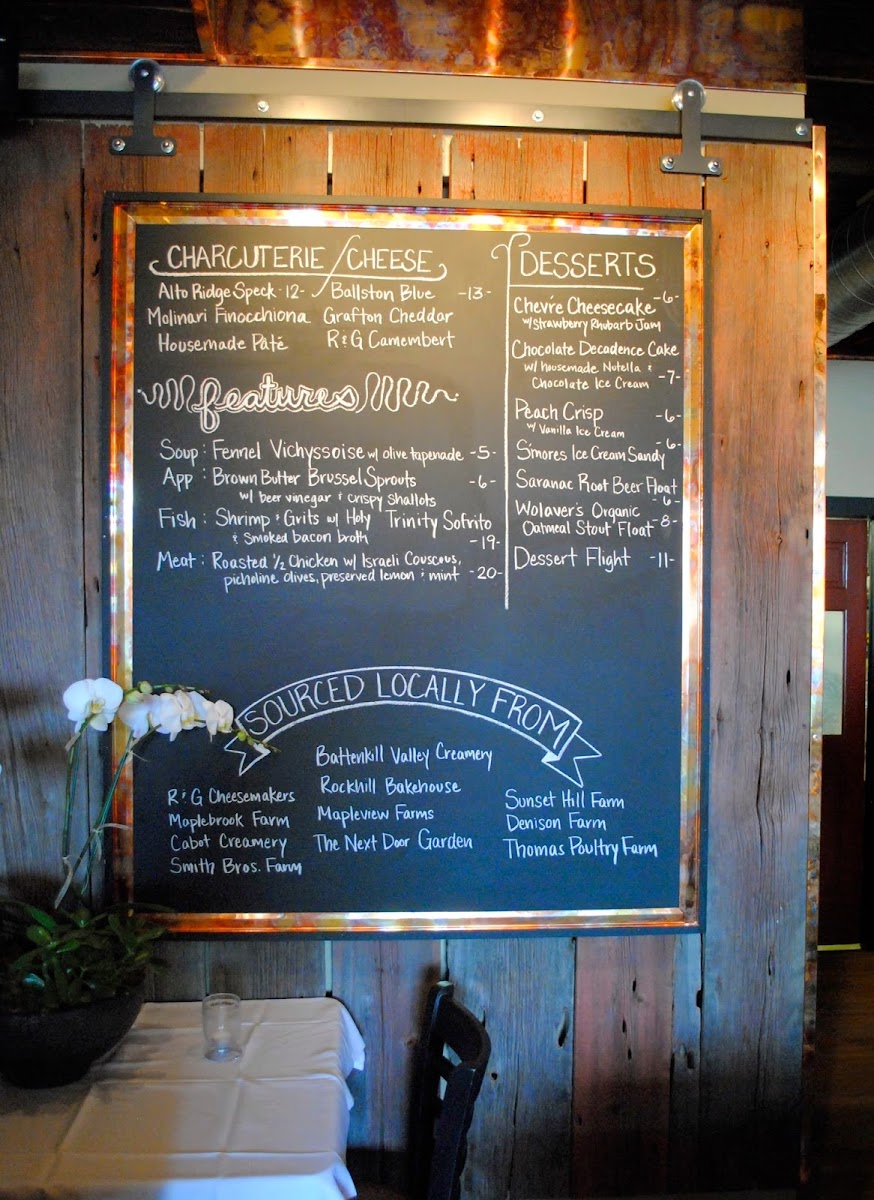 CHARCUTERIE / CHEESE
Alto Ridge Speck -12- Ballston Blue -13-
Molinari Finocchiona Grafton Cheddar
Housemade Paté R & G Camembert
features
Soup : Fennel Vichyssoise w/ olive tapenade -5-
App : Brown Butter Brussel Sprouts -6-
w/ beer vinegar & crispy shallots
Fish : Shrimp & Grits w/ Holy Trinity Sofrito
& Smoked bacon broth -19-
Meat : Roasted 1/2 Chicken w/ Israeli Couscous,
picholine olives, preserved lemon & mint -20-
DESSERTS
Chevre Cheesecake -6-
w/ Strawberry Rhubarb Jam
Chocolate Decadence Cake
w/ housemade Nutella &
Chocolate Ice Cream -7-
Peach Crisp -6-
w/ Vanilla Ice Cream
S'mores Ice Cream Sandy -6-
Saranac Root Beer Float -6-
Wolaver's Organic
Oatmeal Stout Float -8-
Dessert Flight -11-
SOURCED LOCALLY FROM
R & G Cheesemakers
Maplebrook Farm
Cabot Creamery
Smith Bros. Farm
Battenkill Valley Creamery
Rockhill Bakehouse
Mapleview Farms
The Next Door Garden
Sunset Hill Farm
Denison Farm
Thomas Poultry Farm